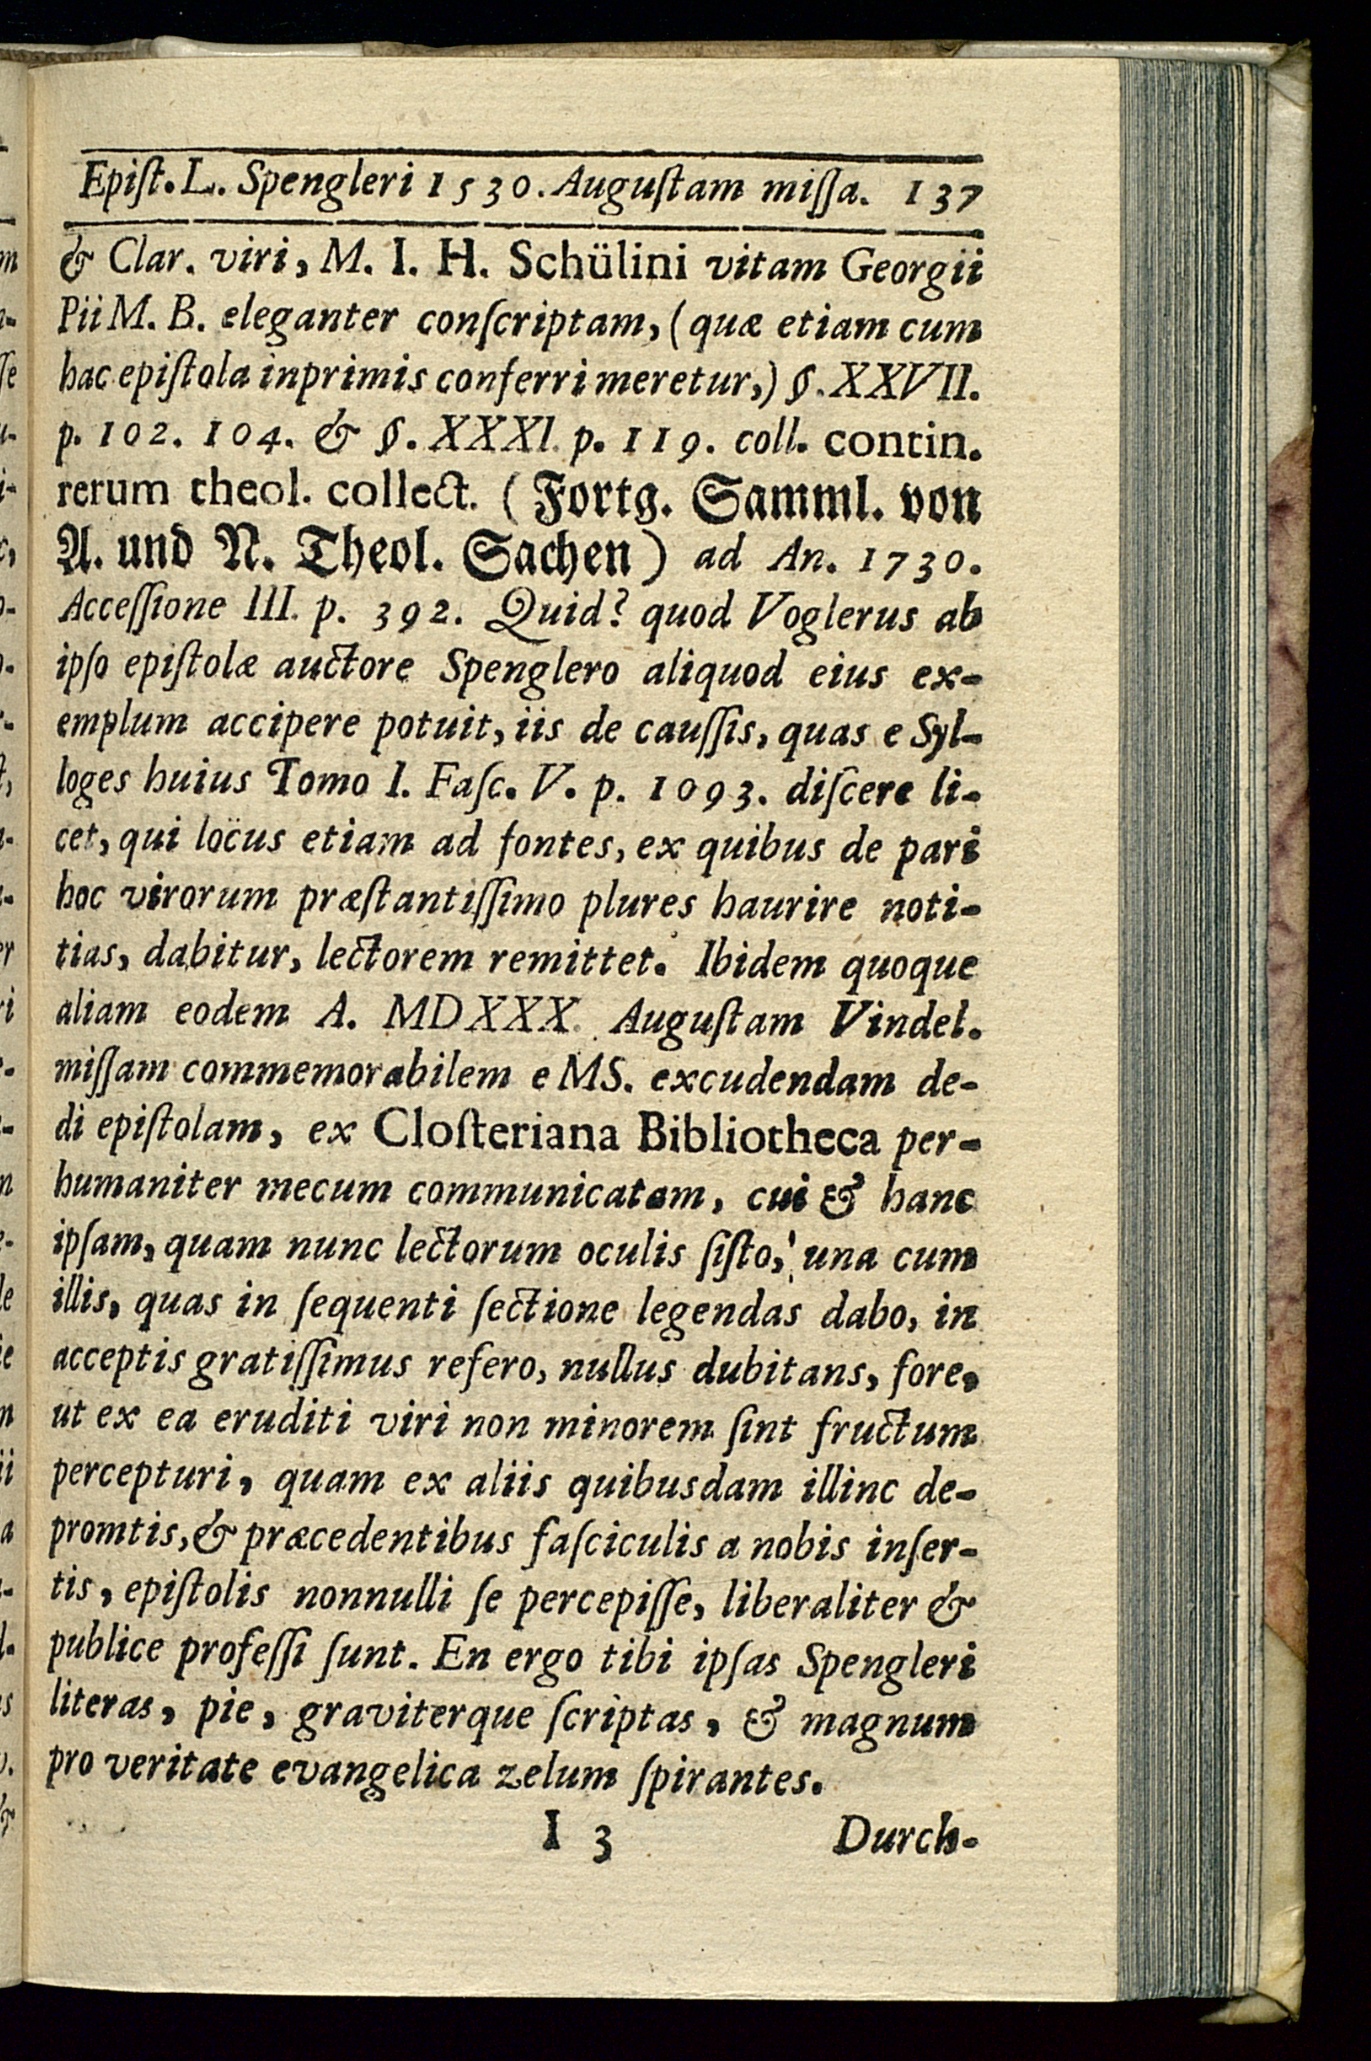 Epiſt. L. Spengleri 1530. Auguſtam miſſa. 137
& Clar. viri, M. I. H. Schülini vitam Georgii
Pii M. B. eleganter conſcriptam, (quæ etiam cum
hac epiſtola inprimis conferri meretur,) §. XXVII.
p. 102. 104. & §. XXXI. p. 119. coll. contin.
rerum theol. collect. (Fortg. Samml. von
A. und N. Theol. Sachen) ad An. 1730.
Acceſſione III. p. 392. Quid? quod Voglerus ab
ipſo epiſtolæ auctore Spenglero aliquod eius ex-
emplum accipere potuit, iis de cauſſis, quas e Syl-
loges huius Tomo I. Faſc. V. p. 1093. diſcere li-
cet, qui locus etiam ad fontes, ex quibus de pari
hoc virorum præſtantiſſimo plures haurire noti-
tias, dabitur, lectorem remittet. Ibidem quoque
aliam eodem A. MDXXX. Auguſtam Vindel.
miſſam commemorabilem e MS. excudendam de-
di epiſtolam, ex Cloſteriana Bibliotheca per-
humaniter mecum communicatam, cui & hanc
ipſam, quam nunc lectorum oculis ſiſto, una cum
illis, quas in ſequenti ſectione legendas dabo, in
acceptis gratiſſimus refero, nullus dubitans, fore,
ut ex ea eruditi viri non minorem ſint fructum
percepturi, quam ex aliis quibusdam illinc de-
promtis, & præcedentibus faſciculis a nobis inſer-
tis, epiſtolis nonnulli ſe percepiſſe, liberaliter &
publice profeſſi ſunt. En ergo tibi ipſas Spengleri
literas, pie, graviterque ſcriptas, & magnum
pro veritate evangelica zelum ſpirantes.
I 3 Durch-